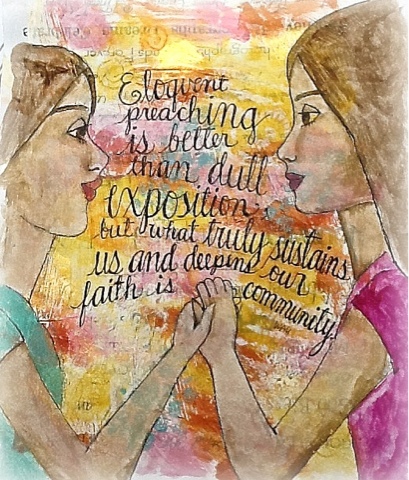 Eloquent
preaching
is better
than dull
exposition;
but what truly sustains
us and deepens our
faith is community.